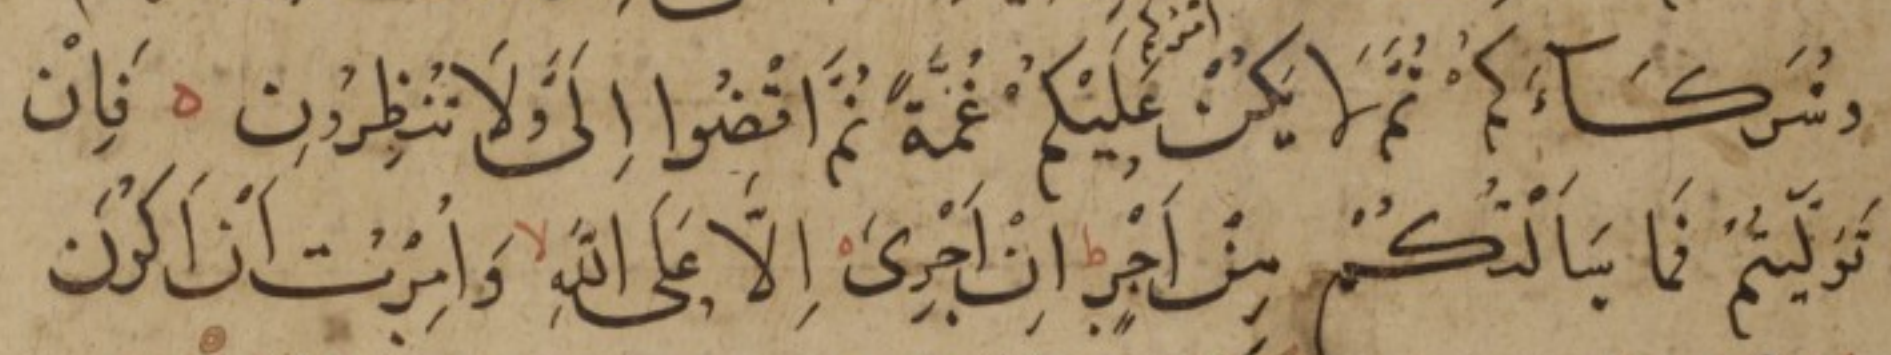 وَشُرَكَآءَكُمْ ثُمَّ لَا يَكُنْ اَمْرُكُمْ عَلَيْكُمْ غُمَّةً ثُمَّ اقْضُوا اِلَىَّ وَلَا تُنْظِرُونِ ه فَاِنْ
تَوَلَّيْتُمْ فَمَا سَاَلْتُكُمْ مِنْ اَجْرٍ ط اِنْ اَجْرِىَ ه اِلَّا عَلَى اللّٰهِ لا وَاُمِرْتُ اَنْ اَكُونَ